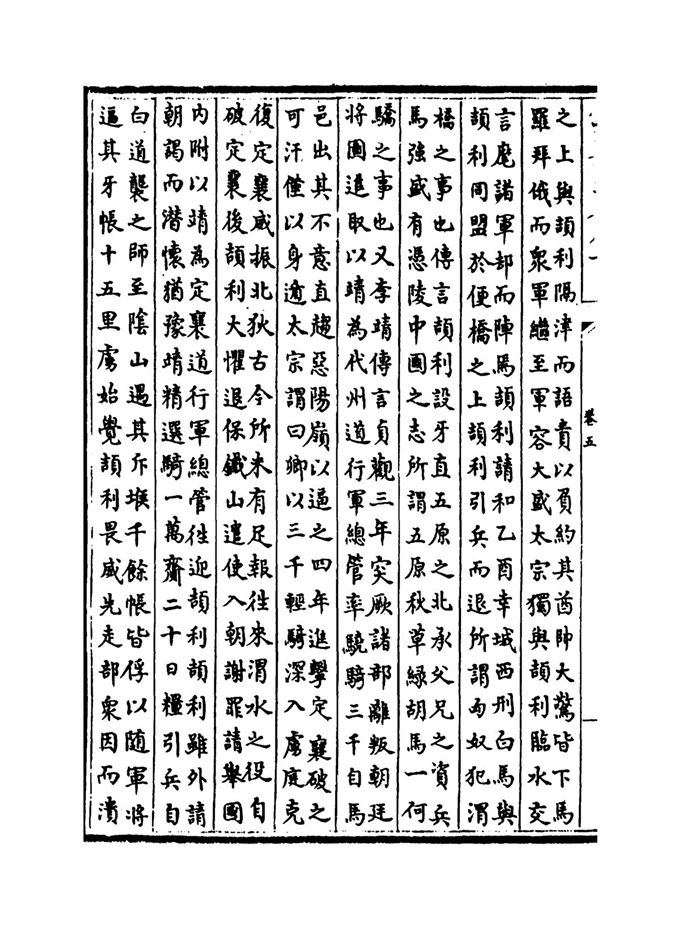 卷五
之上與頡利隔津而語責以負約其酋帥大驚皆下馬
羅拜俄而衆軍繼至軍容大盛太宗獨與頡利臨水交
言麾諸軍却而陣馬頡利請和乙酉幸城西刑白馬與
頡利同盟於便橋之上頡利引兵而退所謂匈奴犯渭
橋之事也傳言頡利設牙直五原之北承父兄之資兵
馬強盛有憑陵中國之志所謂五原秋草綠胡馬一何
驕之事也又李靖傳言貞觀三年突厥諸部離叛朝廷
將圖進取以靖為代州道行軍總管率驍騎三千自馬
邑出其不意直趨惡陽嶺以逼之四年進擊定襄破之
可汗僅以身遁太宗謂曰卿以三千輕騎深入虜庭克
復定襄威振北狄古今所未有足報徃來渭水之役自
破定襄後頡利大懼退保鐵山遣使入朝謝罪請舉國
內附以靖為定襄道行軍總管徃迎頡利頡利雖外請
朝謁而潛懷猶豫靖精選騎一萬齎二十日糧引兵自
白道襲之師至陰山遇其斥堠千餘帳皆俘以随軍將
逼其牙帳十五里虜始覺頡利畏威先走部衆因而潰